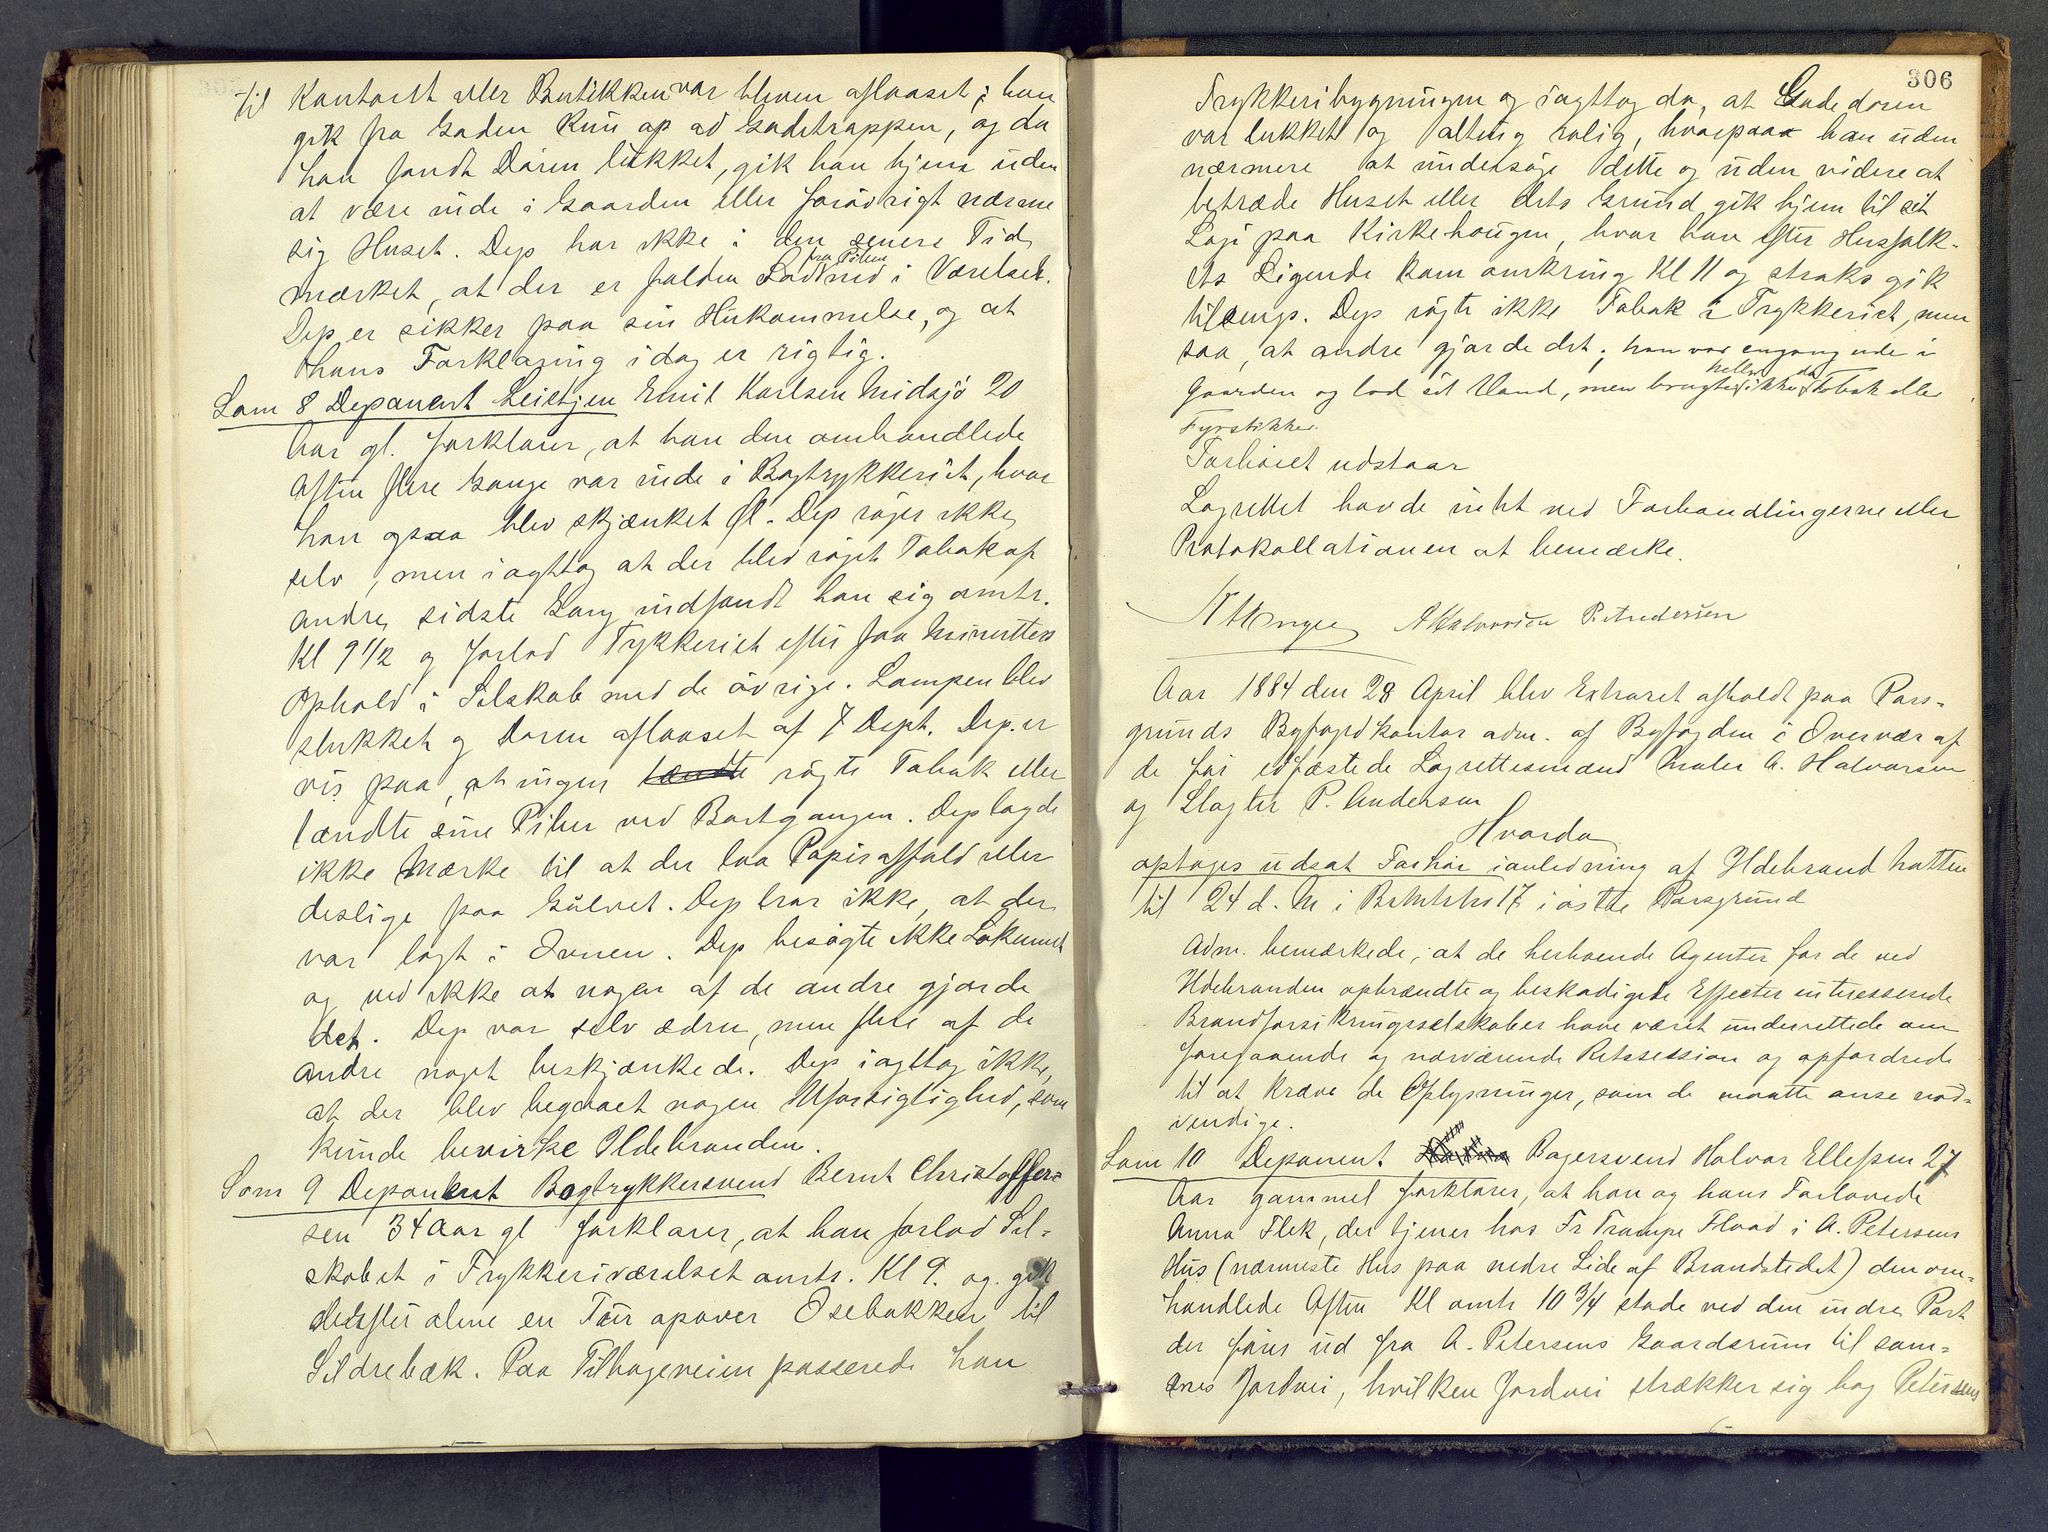 til Kontoret eller Butikken var bleven aflaaset; han
gik fra Gaden kun op ad Gadetrappen, og da
han fandt Døren lukket, gik han hjem uden
at være inde i Gaarden eller forøvrigt nærme
sig Huset. Dep har ikke i den senere Tid
mærket, at der er falden Sod fra Piben ned i Værelset.
Dep er sikker paa sin Hukommelse, og at
hans Forklaring idag er rigtig.
Som 8 Deponent Emil Karlsen Midsjö 20
Aar gl. forklarer, at han den omhandlede
Aften flere Gange var inde i Bogtrykkeriet, hvor
han ogsaa blev skjænket Øl. Dep røger ikke
selv, men iagttog at der blev røget Tobak af
andre, sidste Gang indfandt han sig omtr.
Kl 9 1/2 og forlod Trykkeriet efter faa Minutters
Ophold i Selskab med de øvrige. Lampen blev
slukket og Døren aflaaset af 7 Dept. Dep. er
vis paa, at ingen tændte røgte Tobak eller
tændte sine Piber ved Bortgangen. Dep lagde
ikke Mærke til at der laa Papiraffald eller
deslige paa Gulvet. Dep tror ikke, at der
var lagt i Ovnen. Dep besøgte ikke Lokummet
og ved ikke at nogen af de andre gjorde
det. Dep var selv ædru, men flere af de
andre noget beskjænkede. Dep iagttog ikke,
at der blev begaaet nogen Uforsigtighed, som
kunde bevirke Ildebranden.
Som 9 Deponent Bogtrykkersvend Bernt Christoffer-
sen 34 Aar gl forklarer, at han forlod Sel-
skabet i Trykkeriværelset omtr. Kl 9. og gik
derefter alene en Tur opover Osebakken til
Sildrebæk. Paa Tilbageveien passerede han
306
Trykkeribygningen og iagttog da, at Gadedøren
var lukket og alting rolig, hvorpaa han uden
nærmere at undersøge dette og uden videre at
betræde Huset eller dets Grund gik hjem til sit
Logi paa Kirkehougen, hvor han efter Husfolk-
ets Sigende kom omkring Kl 11 og straks gik
tilsengs. Dep røgte ikke Tobak i Trykkeriet, men
saa, at andre gjorde det; han var engang ude i
Gaarden og lod sit Vand, men brugte heller ikke da Tobak eller
Fyrstikker.
Forhøret udstaar
Lagrettet havde intet ved Forhandlingerne eller
Protokollationen at bemærke.
A Halvorsen P. Andersen
Aar 1884 den 28 April blev Extraret afholdt paa Pors-
grunds Byfogdkontor adm. af Byfogden i Overvær af
de før edfæstede Lagrettesmænd Maler A. Halvorsen
og Slagter P. Andersen
Hvorda
optoges udsat Forhør ianledning af Ildebrand Natten
til 24 d. M i 17 i østre Porsgrund
Adm. bemærkede, at de herboende Agenter for de ved
Ildebranden opbrændte og beskadigede Effecter interesserede
Brandforsikringsselskaber have været underrettede om
foregaaende og nærværende Retssession og opfordrede
til at kræve de Oplysninger, som de maatte anse nød-
vendige.
Som 10 Deponent Bagersvend Halvor Ellefsen 27
Aar gammel forklarer, at han og hans Forlovede
Anna Flek, der tjener hos Fr Trampe Flood i A. Petersens
Hus (nærmeste Hus paa nedre Side af Brandstedet) den om-
handlede Aften Kl omtr 10 3/4 stode ved den indre Port
der fører ud fra A. Petersens Gaardsrum til sam-
mes Jordvei, hvilken Jordvei strækker sig bag Petersens